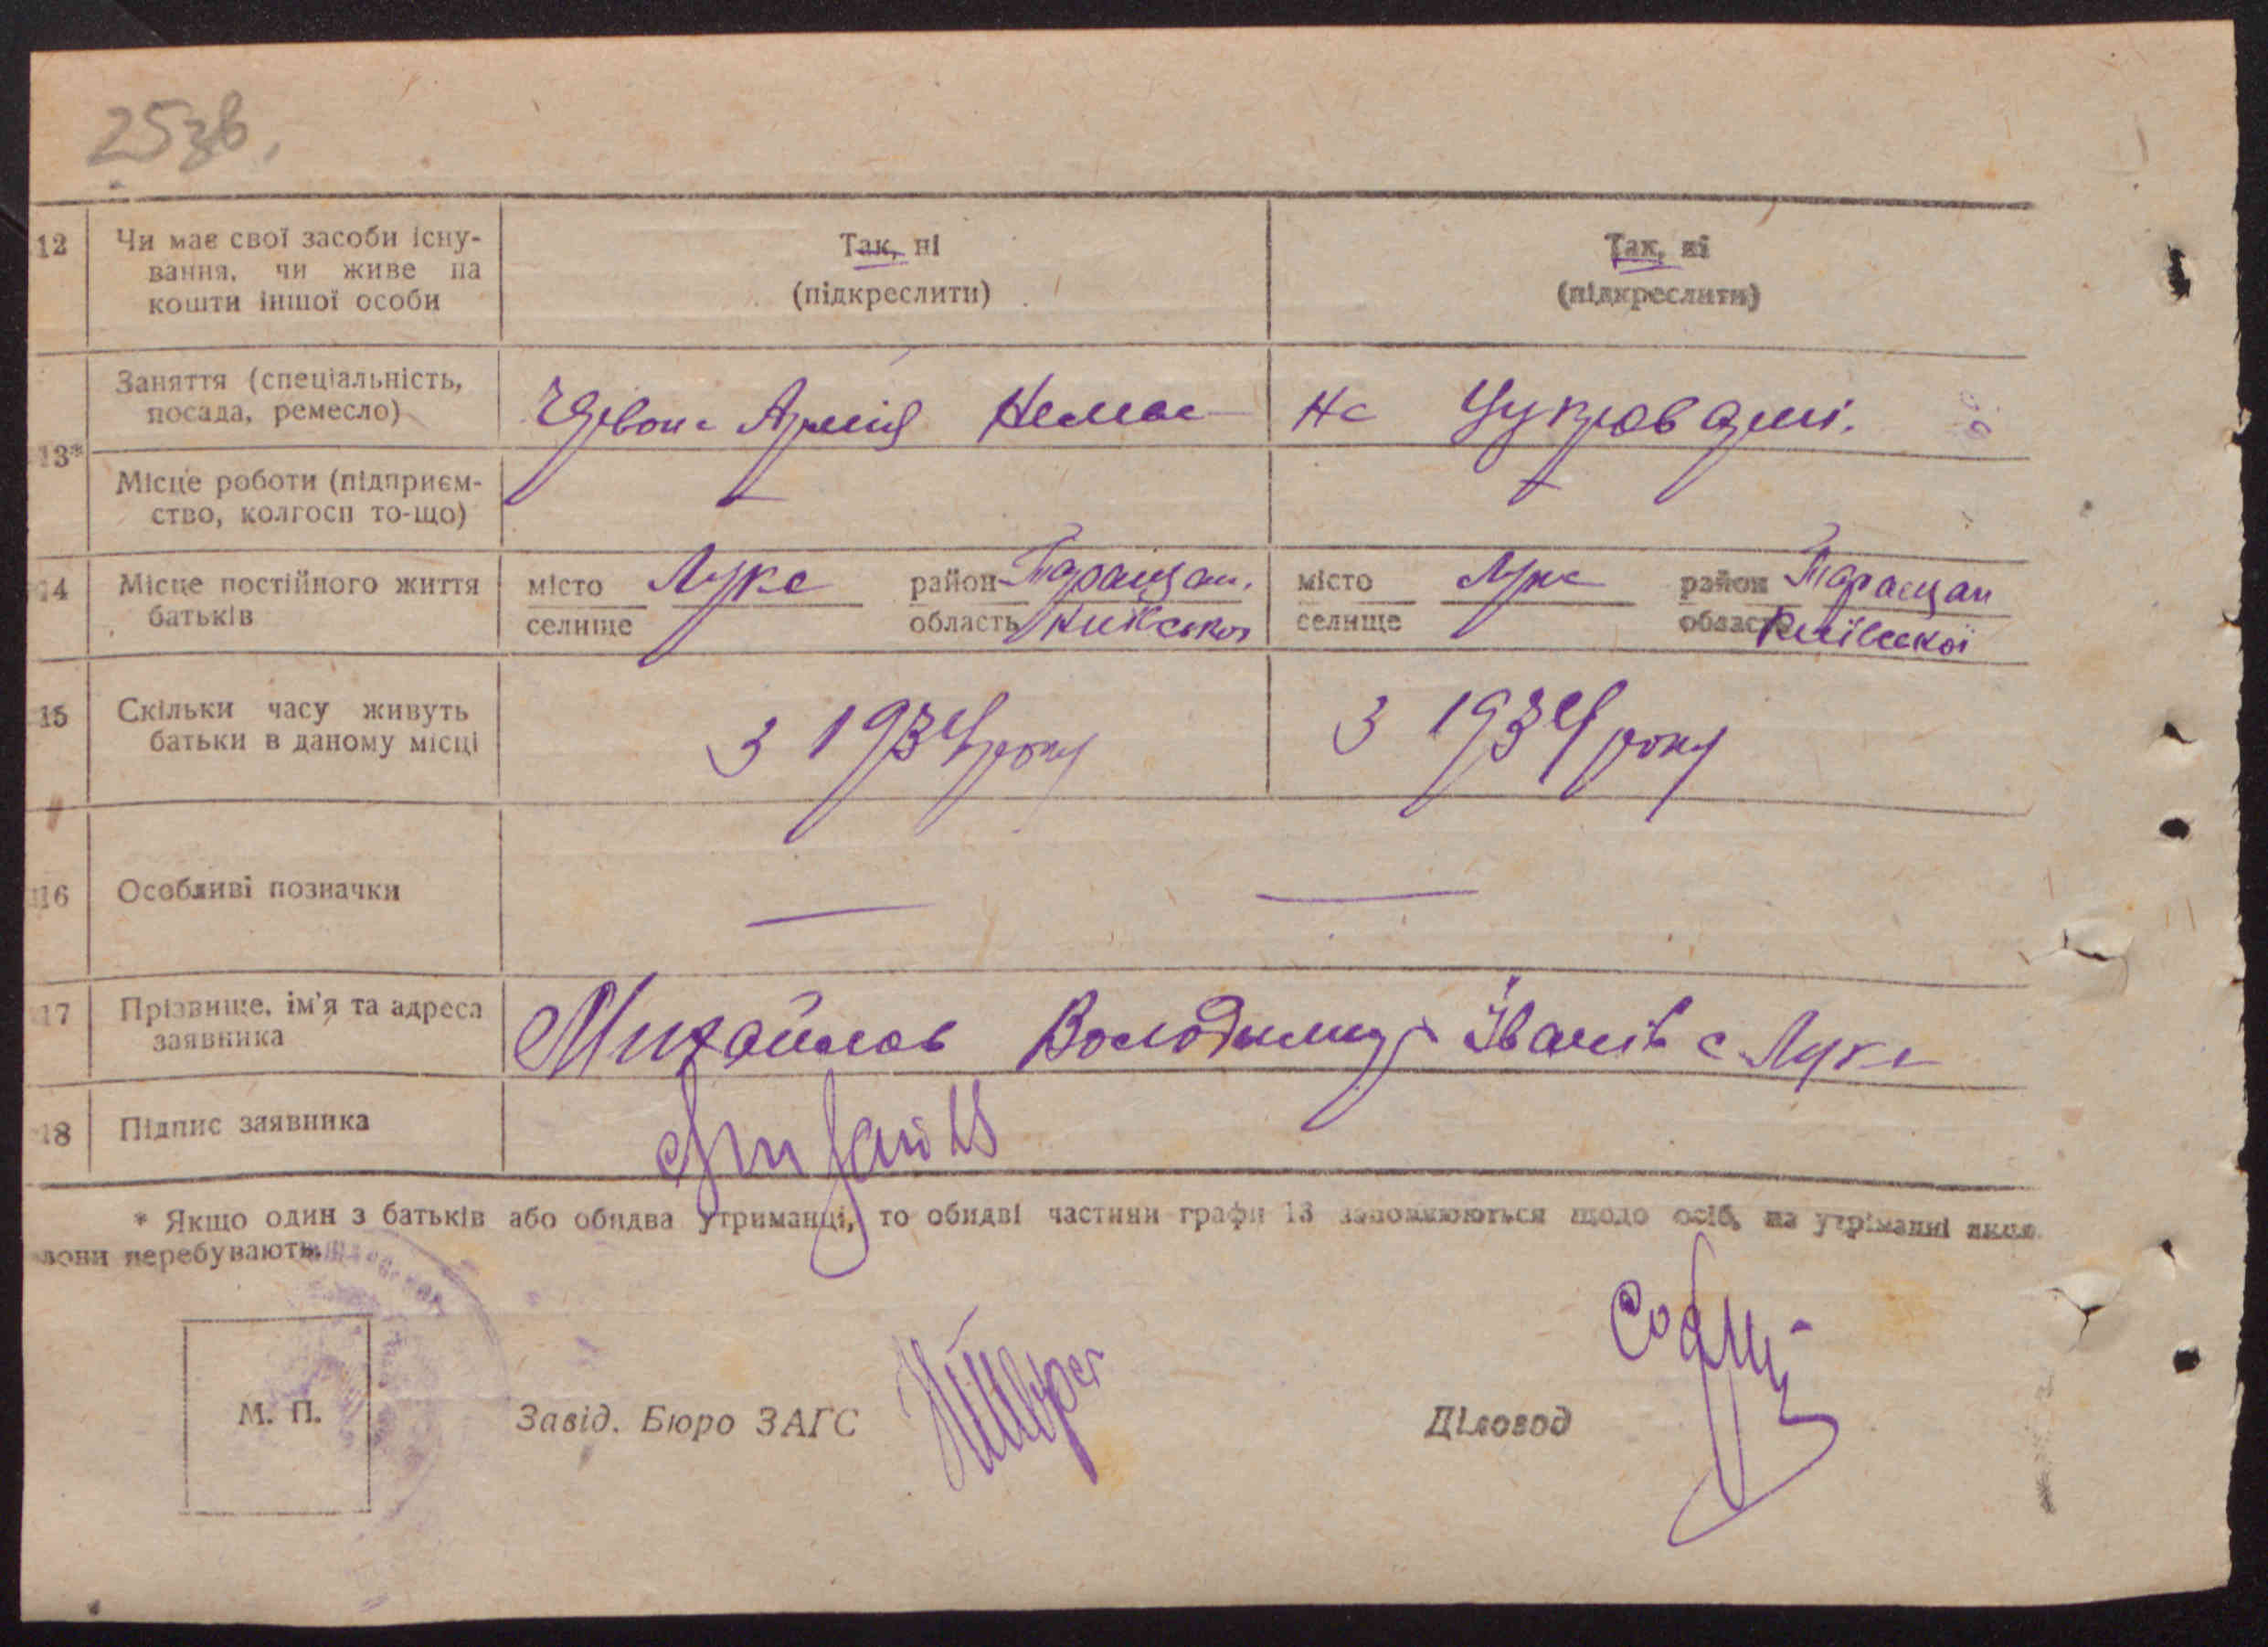 25зв.
12 Чи має свої засоби існу-
вання, чи живе на
кошти іншої особи
Так, ні
(підкреслити)
Так, ні
(підкреслити)
13*
Заняття (спеціальність,
посада, ремесло)
Армія Немає
На Цукроварні.
Місце роботи (підприєм-
ство, колгосп то-що)
14 Місце постійного життя
батьків
місто Лука район Таращан.
селище область
місто Лука район Таращан
селище область Київської
15 Скільки часу живуть
батьки в даному місці
З 1934 року
З 1934 року
16 Особливі позначки
17 Прізвище, ім'я та адреса
заявника
Михайлов Володимир Іванів с Лука
18 Підпис заявника
* Якщо один з батьків або обидва утриманці, то обидві частини графи 13 заповнюються щодо осіб, на утріманні яких
вони перебувають.
М. П.
Завід. Бюро ЗАГС
Діловод